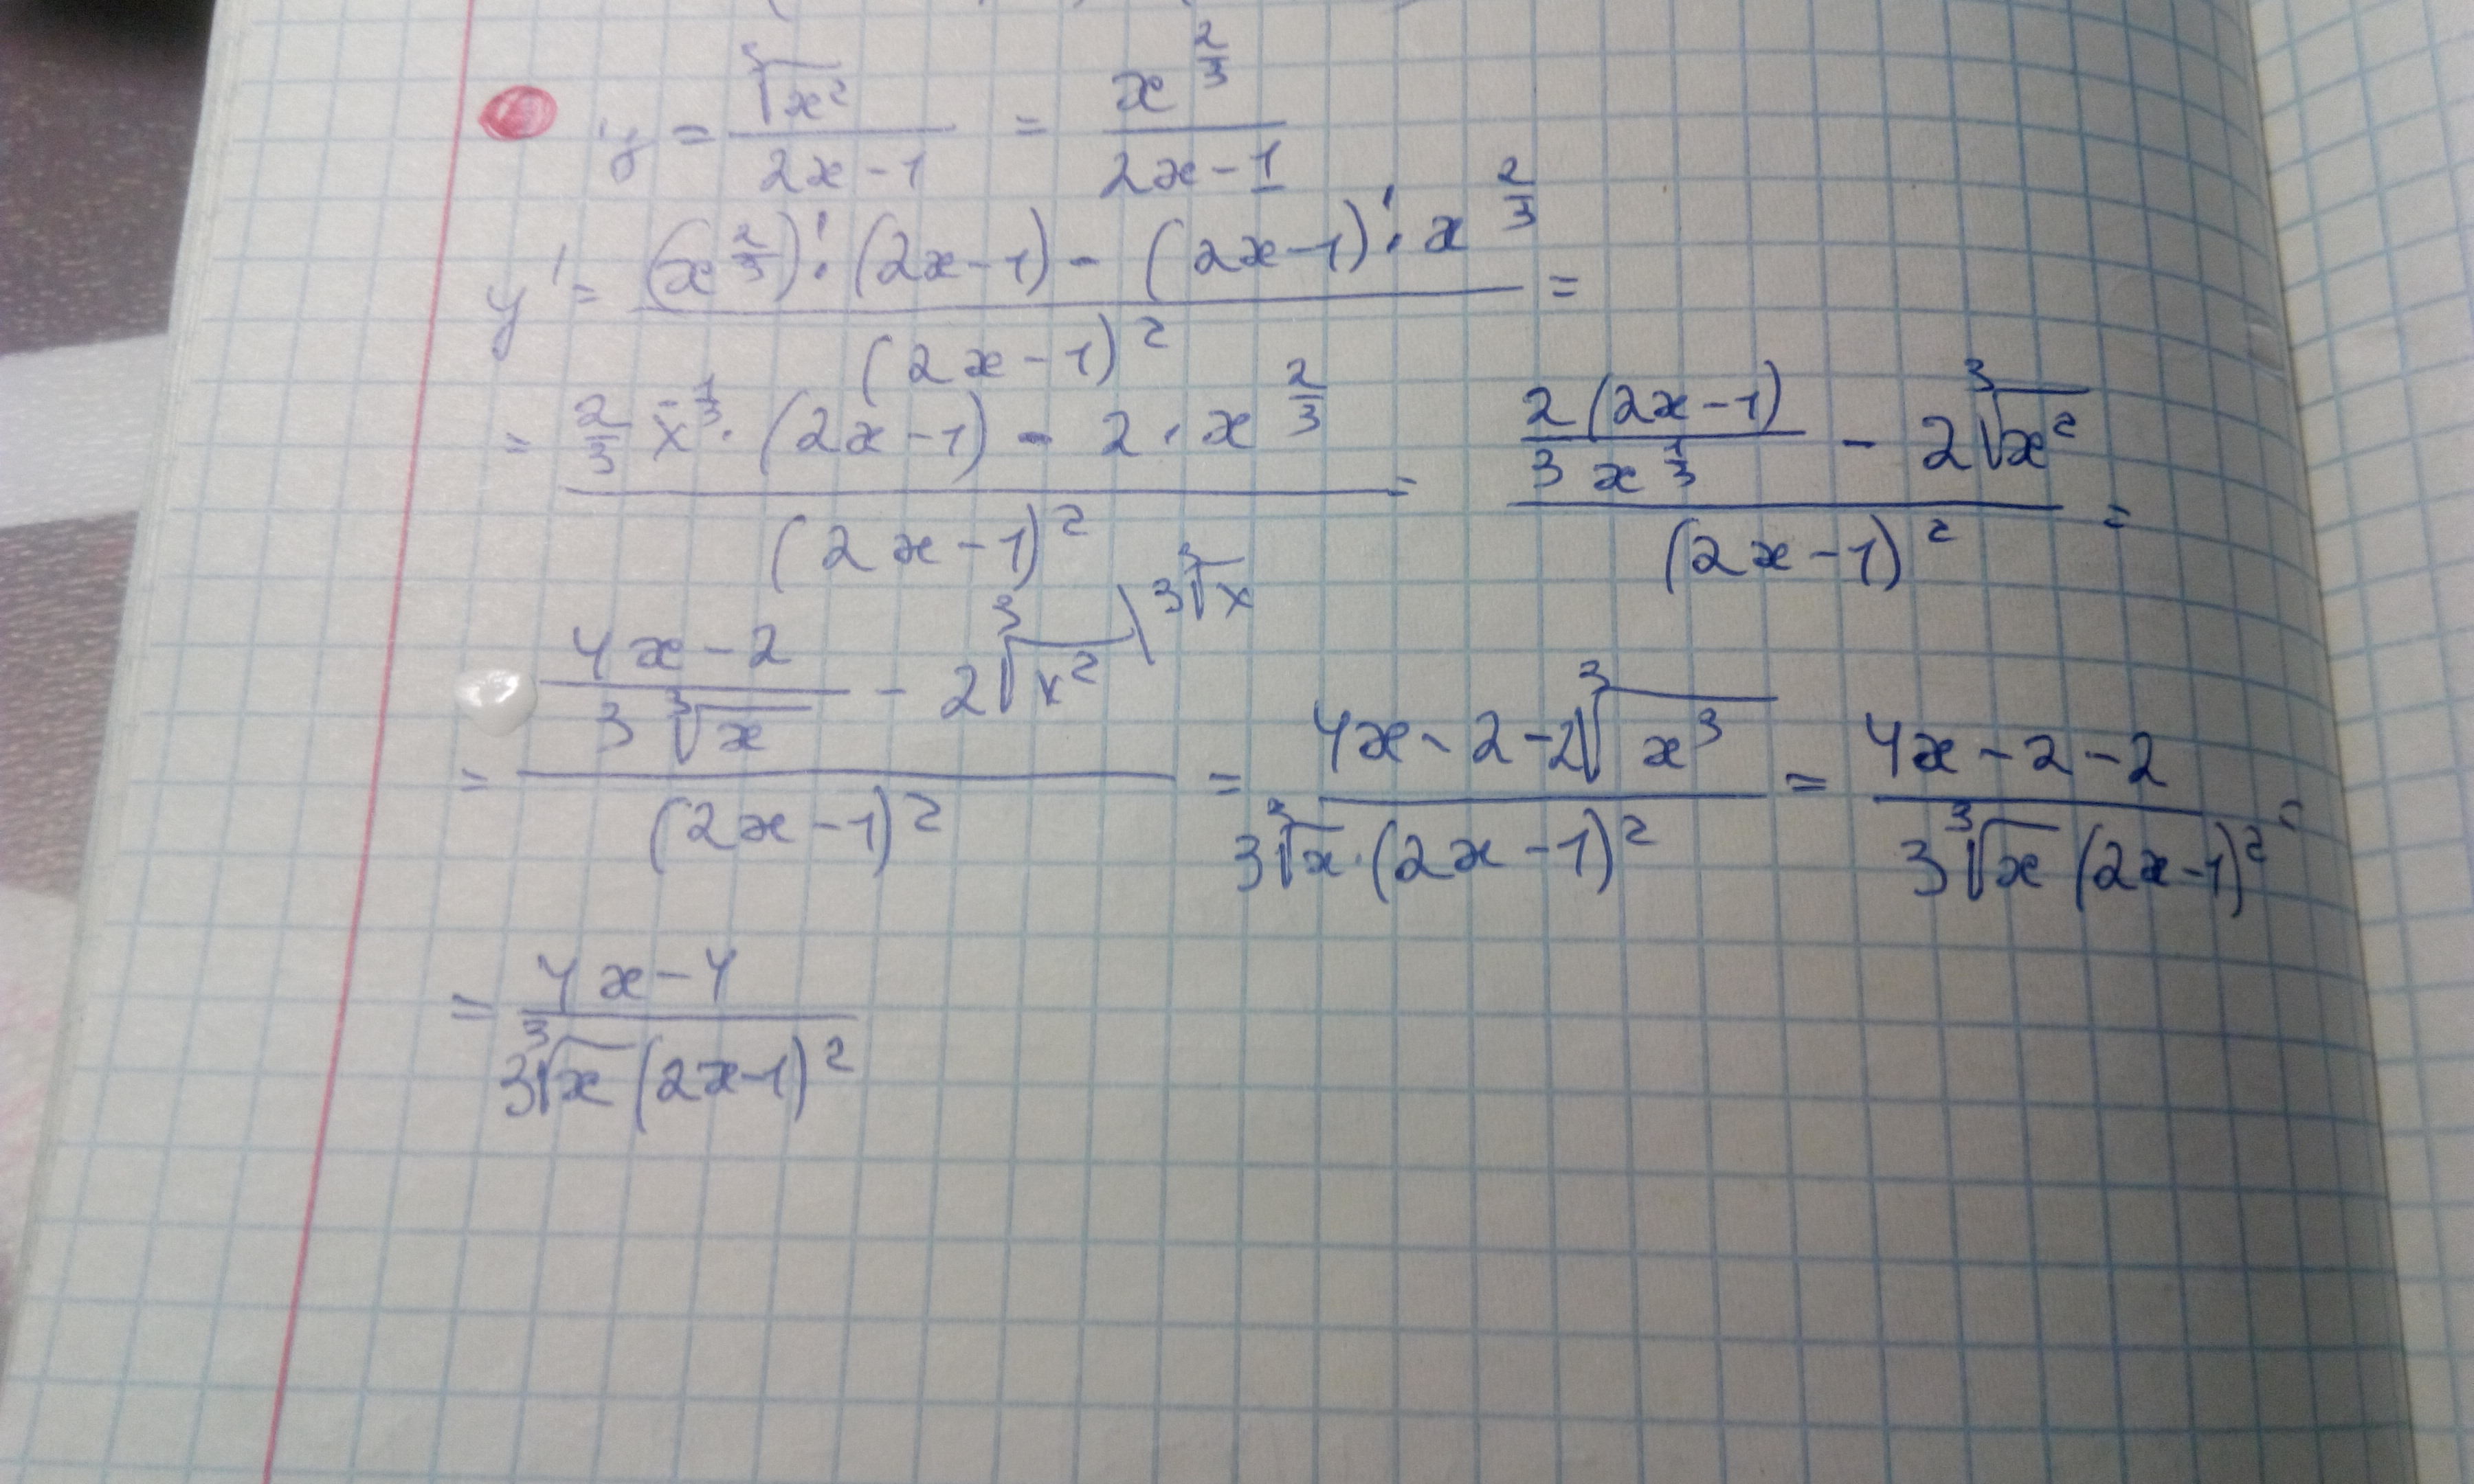 y = ∛x² / (2x-1) = x^(2/3) / (2x-1)
y' = ((x^(2/3))' · (2x-1) - (2x-1)' · x^(2/3)) / (2x-1)² =
= (2/3 x^(-1/3) · (2x-1) - 2 · x^(2/3)) / (2x-1)² = (2(2x-1) / (3x^(1/3)) - 2∛x²) / (2x-1)² =
= ((4x-2) / (3∛x) - 2∛x² \ 3∛x) / (2x-1)² = (4x-2-2∛x³) / (3∛x · (2x-1)²) = (4x-2-2) / (3∛x (2x-1)²) =
= (4x-4) / (3∛x (2x-1)²)